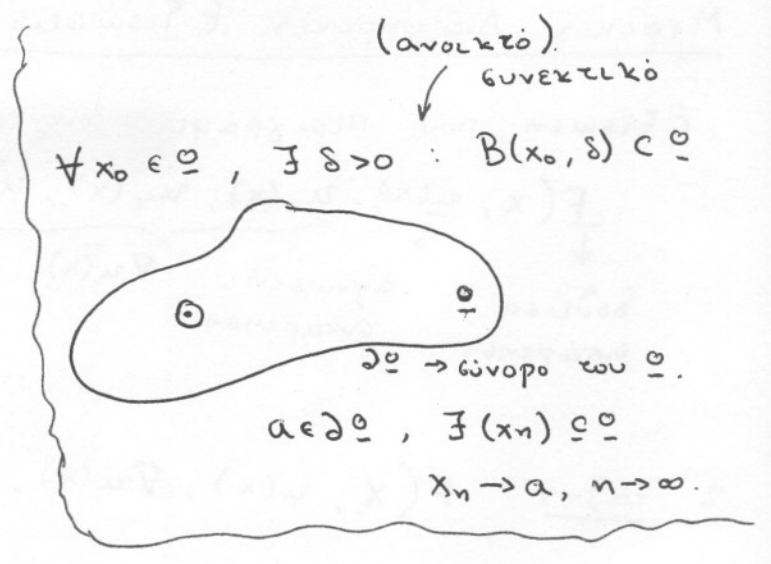 (ανοικτό).
συνεκτικό
∀ x₀ ∈ Ω , ∃ δ>0 : B(x₀, δ) ⊂ Ω
Ω
∂Ω → σύνορο του Ω.
α ∈ ∂Ω , ∃ (xₙ) ⊆ Ω
xₙ → α, n → ∞.